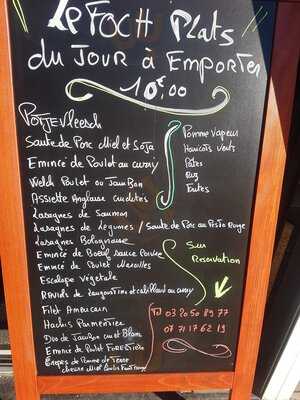 Le FOCH Plats
du Jour à Emporter
10€,00
Potjevleesch
Saute de Porc Miel et Soja
Emincé de Poulet au curry
Welch Poulet ou Jambon
Assiette Anglaise Crudités
Lasagnes de Saumon
Lasagnes de Légumes / Saute de Porc au Pesto Rouge
Lasagnes Bolognaise
Emincé de Boeuf sauce Poivre
Emincé de Poulet Maroilles
Escalope Végétale
Raviolis de langoustines et cabillaud au curry
Filet Américain
Hachis Parmentier
Duo de Jambon cru et Blanc
Emincé de Poulet FORESTIERE
Crêpes de Pomme de Terre
chèvre Miel
Pomme Vapeur
Haricots Verts
Pâtes
Riz
Frites
Sur
Reservation
Tel 03 20 50 89 77
07 71 17 62 19